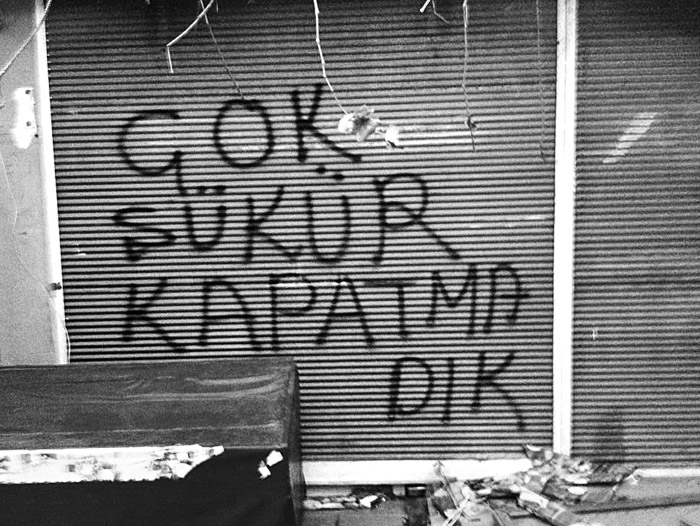 ÇOK
ŞÜKÜR
KAPATMA
DIK